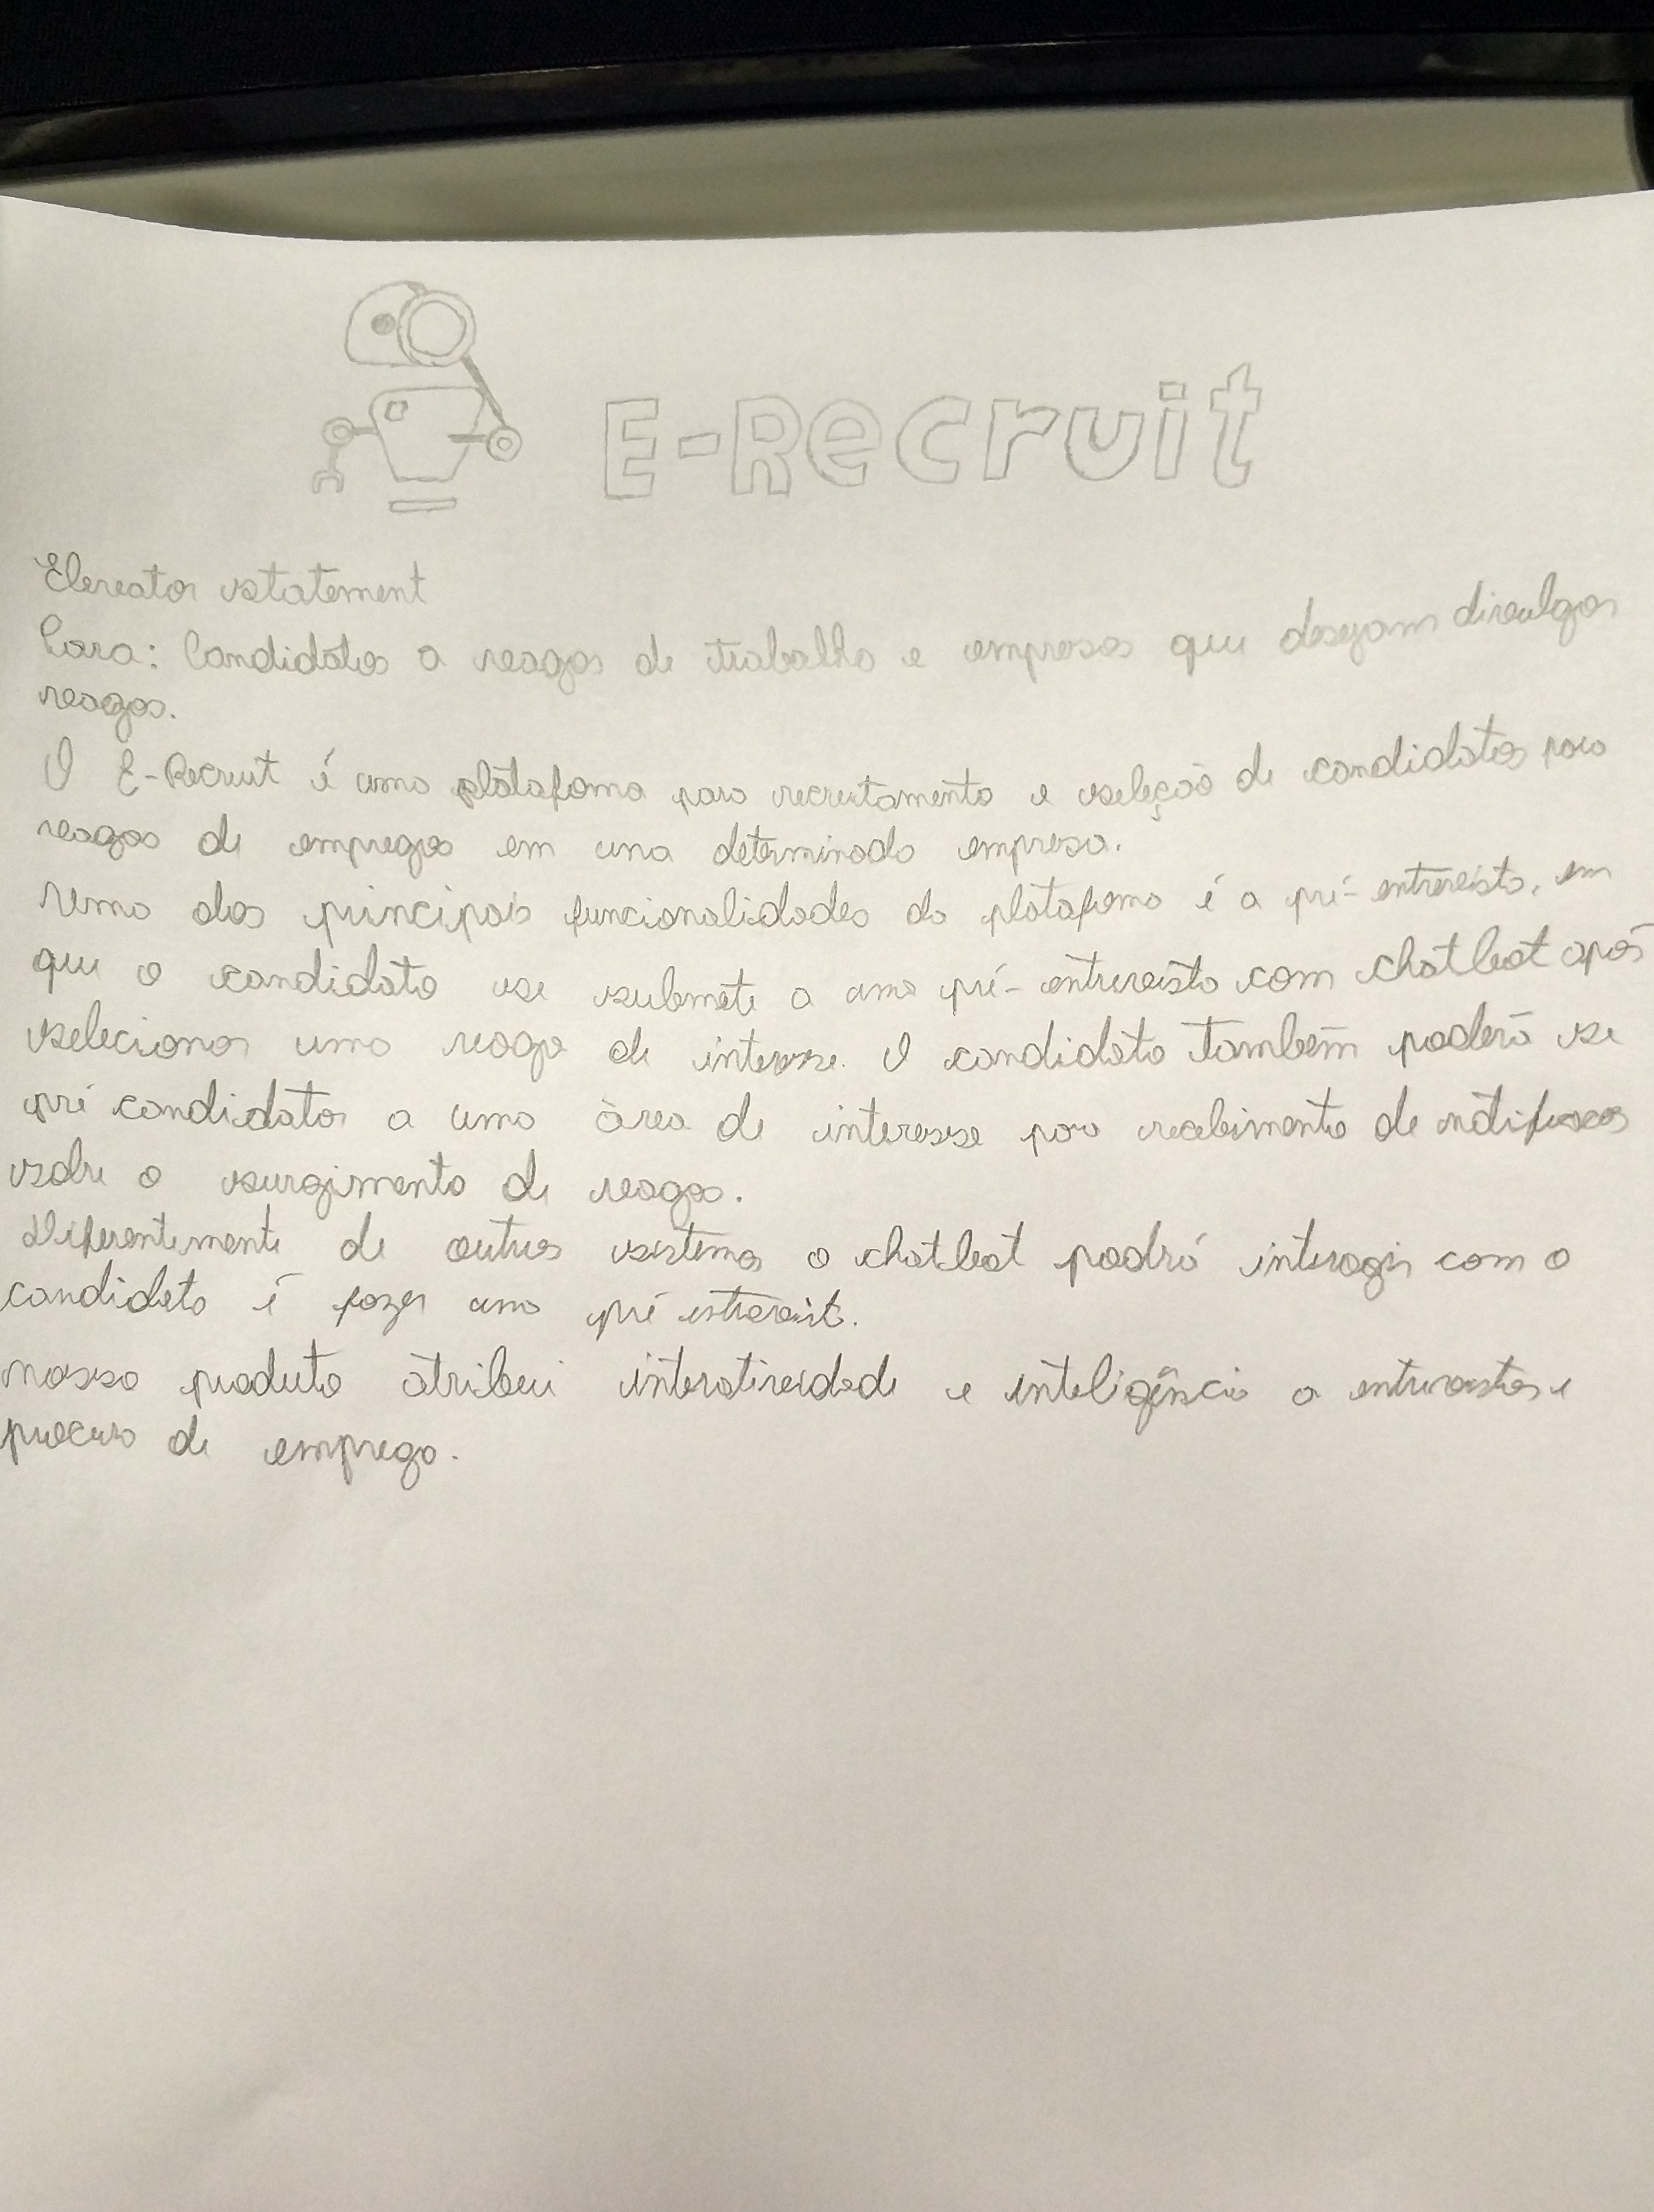 E-Recruit
Elevator statement
Para: Candidatos a vagas de trabalho e empresas que desejam divulgar
vagas.
O E-Recruit é uma plataforma para recrutamento e seleção de candidatos para
vagas de empregos em uma determinada empresa.
Uma das principais funcionalidades da plataforma é a pré-entrevista, em
que o candidato se submete a uma pré-entrevista com chatbot após
selecionar uma vaga de interesse. O candidato também poderá se
pré candidatar a uma área de interesse para recebimento de notificações
sobre o surgimento de vagas.
Diferentemente de outros sistemas o chatbot podrá interagir com o
candidato é fazer uma pré entrevist.
nosso produto atribui interatividade e inteligência a entrevistas e
procura de emprego.